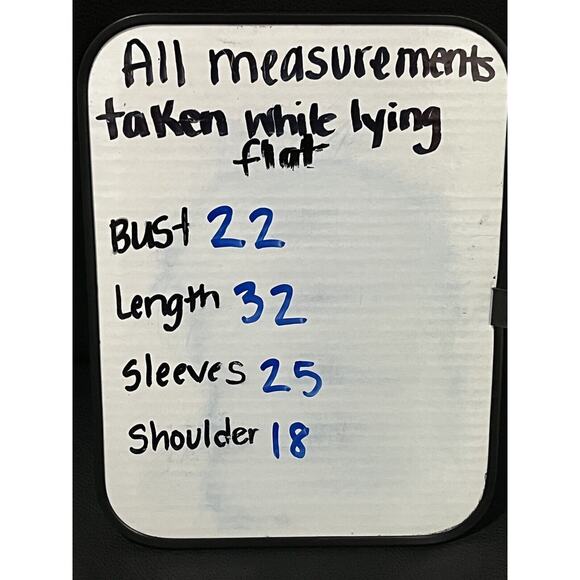 All measurements
taken while lying
flat
Bust 22
Length 32
Sleeves 25
Shoulder 18